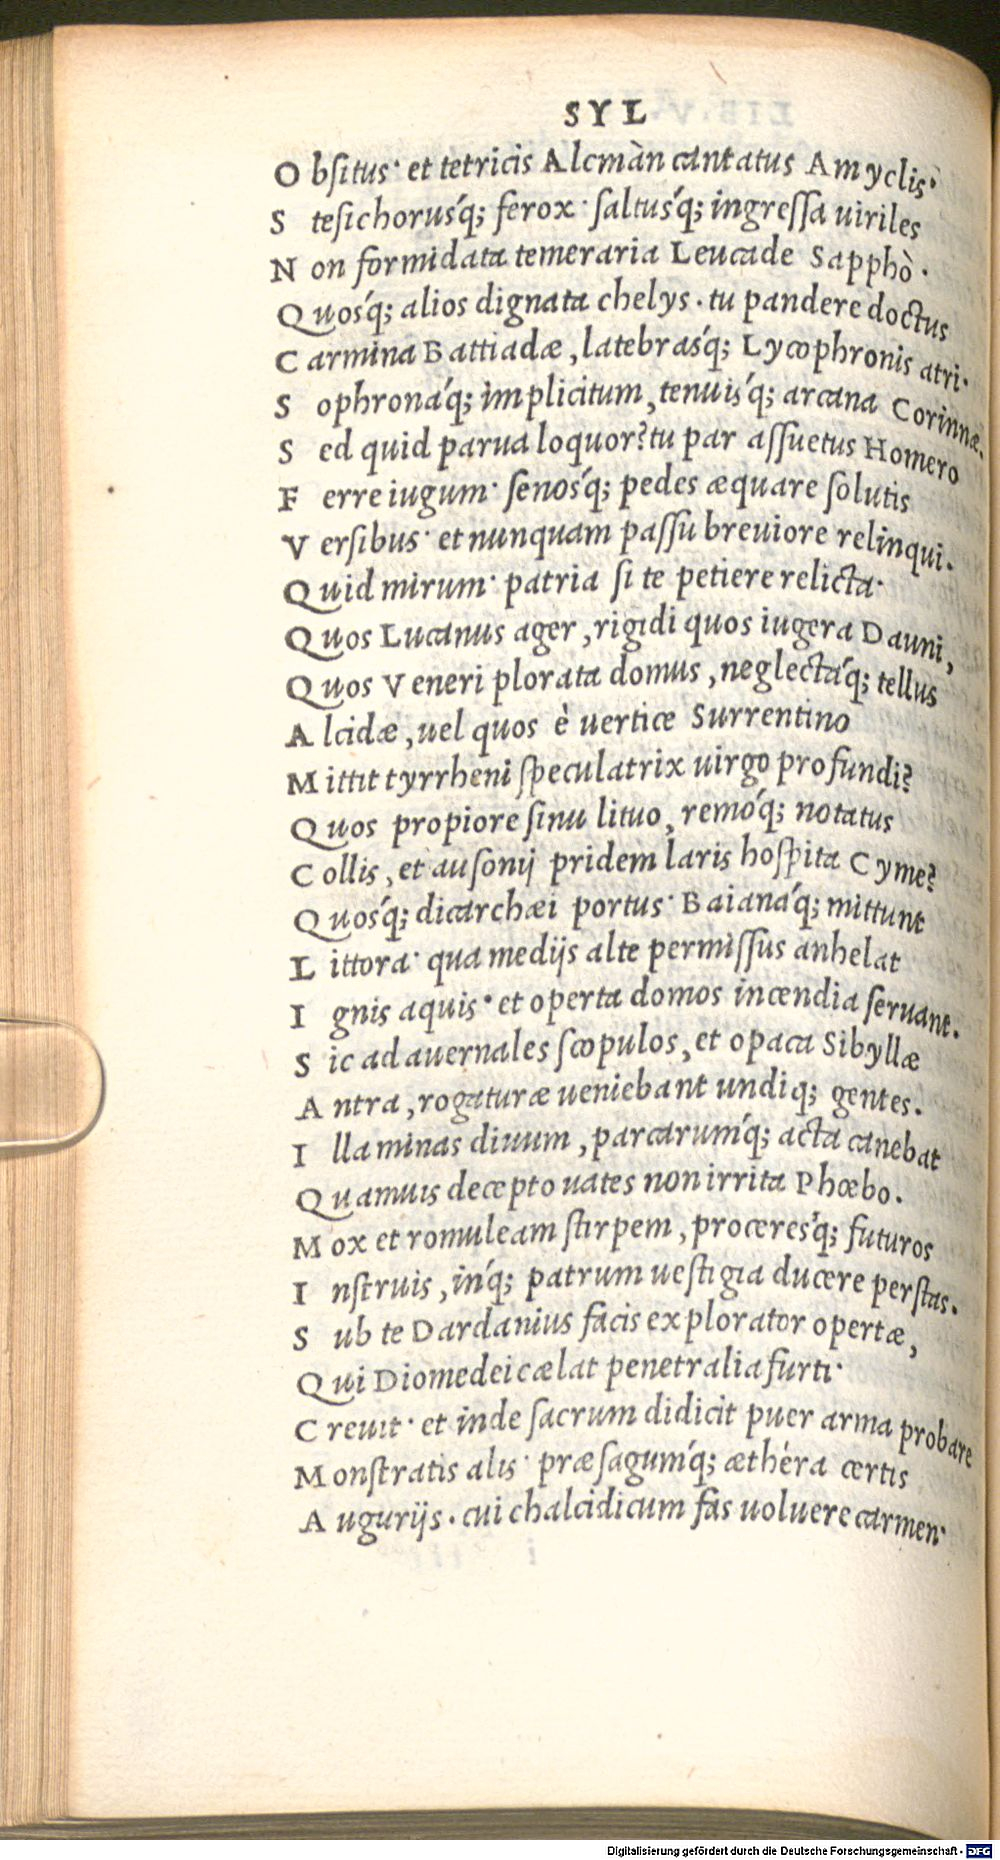 SYL
Obſitus· et tetricis Alcmàn cantatus Amyclis·
Steſichorus'q; ferox· ſaltus'q; ingreſſa uiriles
Non formidata temeraria Leucade Sapphò.
Quos'q; alios dignata chelys. tu pandere doctus
Carmina Battiadæ, latebras'q; Lycophronis atri·
Sophroná'q; implicitum, tenuis'q; arcana Corinnæ.
Sed quid parua loquor? tu par aſſuetus Homero
Ferre iugum· ſenos'q; pedes æquare ſolutis
Verſibus· et nunquam paſſu breuiore relinqui.
Quid mirum· patria ſi te petiere relicta·
Quos Lucanus ager, rigidi quos iugera Dauni,
Quos Veneri plorata domus, neglectá'q; tellus
Alcidæ, uel quos è uertice Surrentino
Mittit tyrrheni ſpeculatrix uirgo profundi?
Quos propiore ſinu lituo, remó'q; notatus
Collis, et auſonij pridem laris hoſpita Cyme?
Quos'q; dicarchæi portus· Baianá'q; mittunt
Littora· qua medijs alte permiſſus anhelat
Ignis aquis· et operta domos incendia ſeruant.
Sic ad auernales ſcopulos, et opaca Sibyllæ
Antra, rogaturæ ueniebant undiq; gentes.
Illa minas diuum, parcarum'q; acta canebat
Quamuis decepto uates non irrita Phœbo.
Mox et romuleam ſtirpem, proceres'q; futuros
Inſtruis, in'q; patrum ueſtigia ducere perſtas.
Sub te Dardanius facis explorator opertæ,
Qui Diomedei cælat penetralia furti·
Creuit· et inde ſacrum didicit puer arma probare
Monſtratis alis· præſagum'q; æthéra certis
Augurijs. cui chalcidicum fas uoluere carmen·
Digitalisierung gefördert durch die Deutsche Forschungsgemeinschaft - DFG